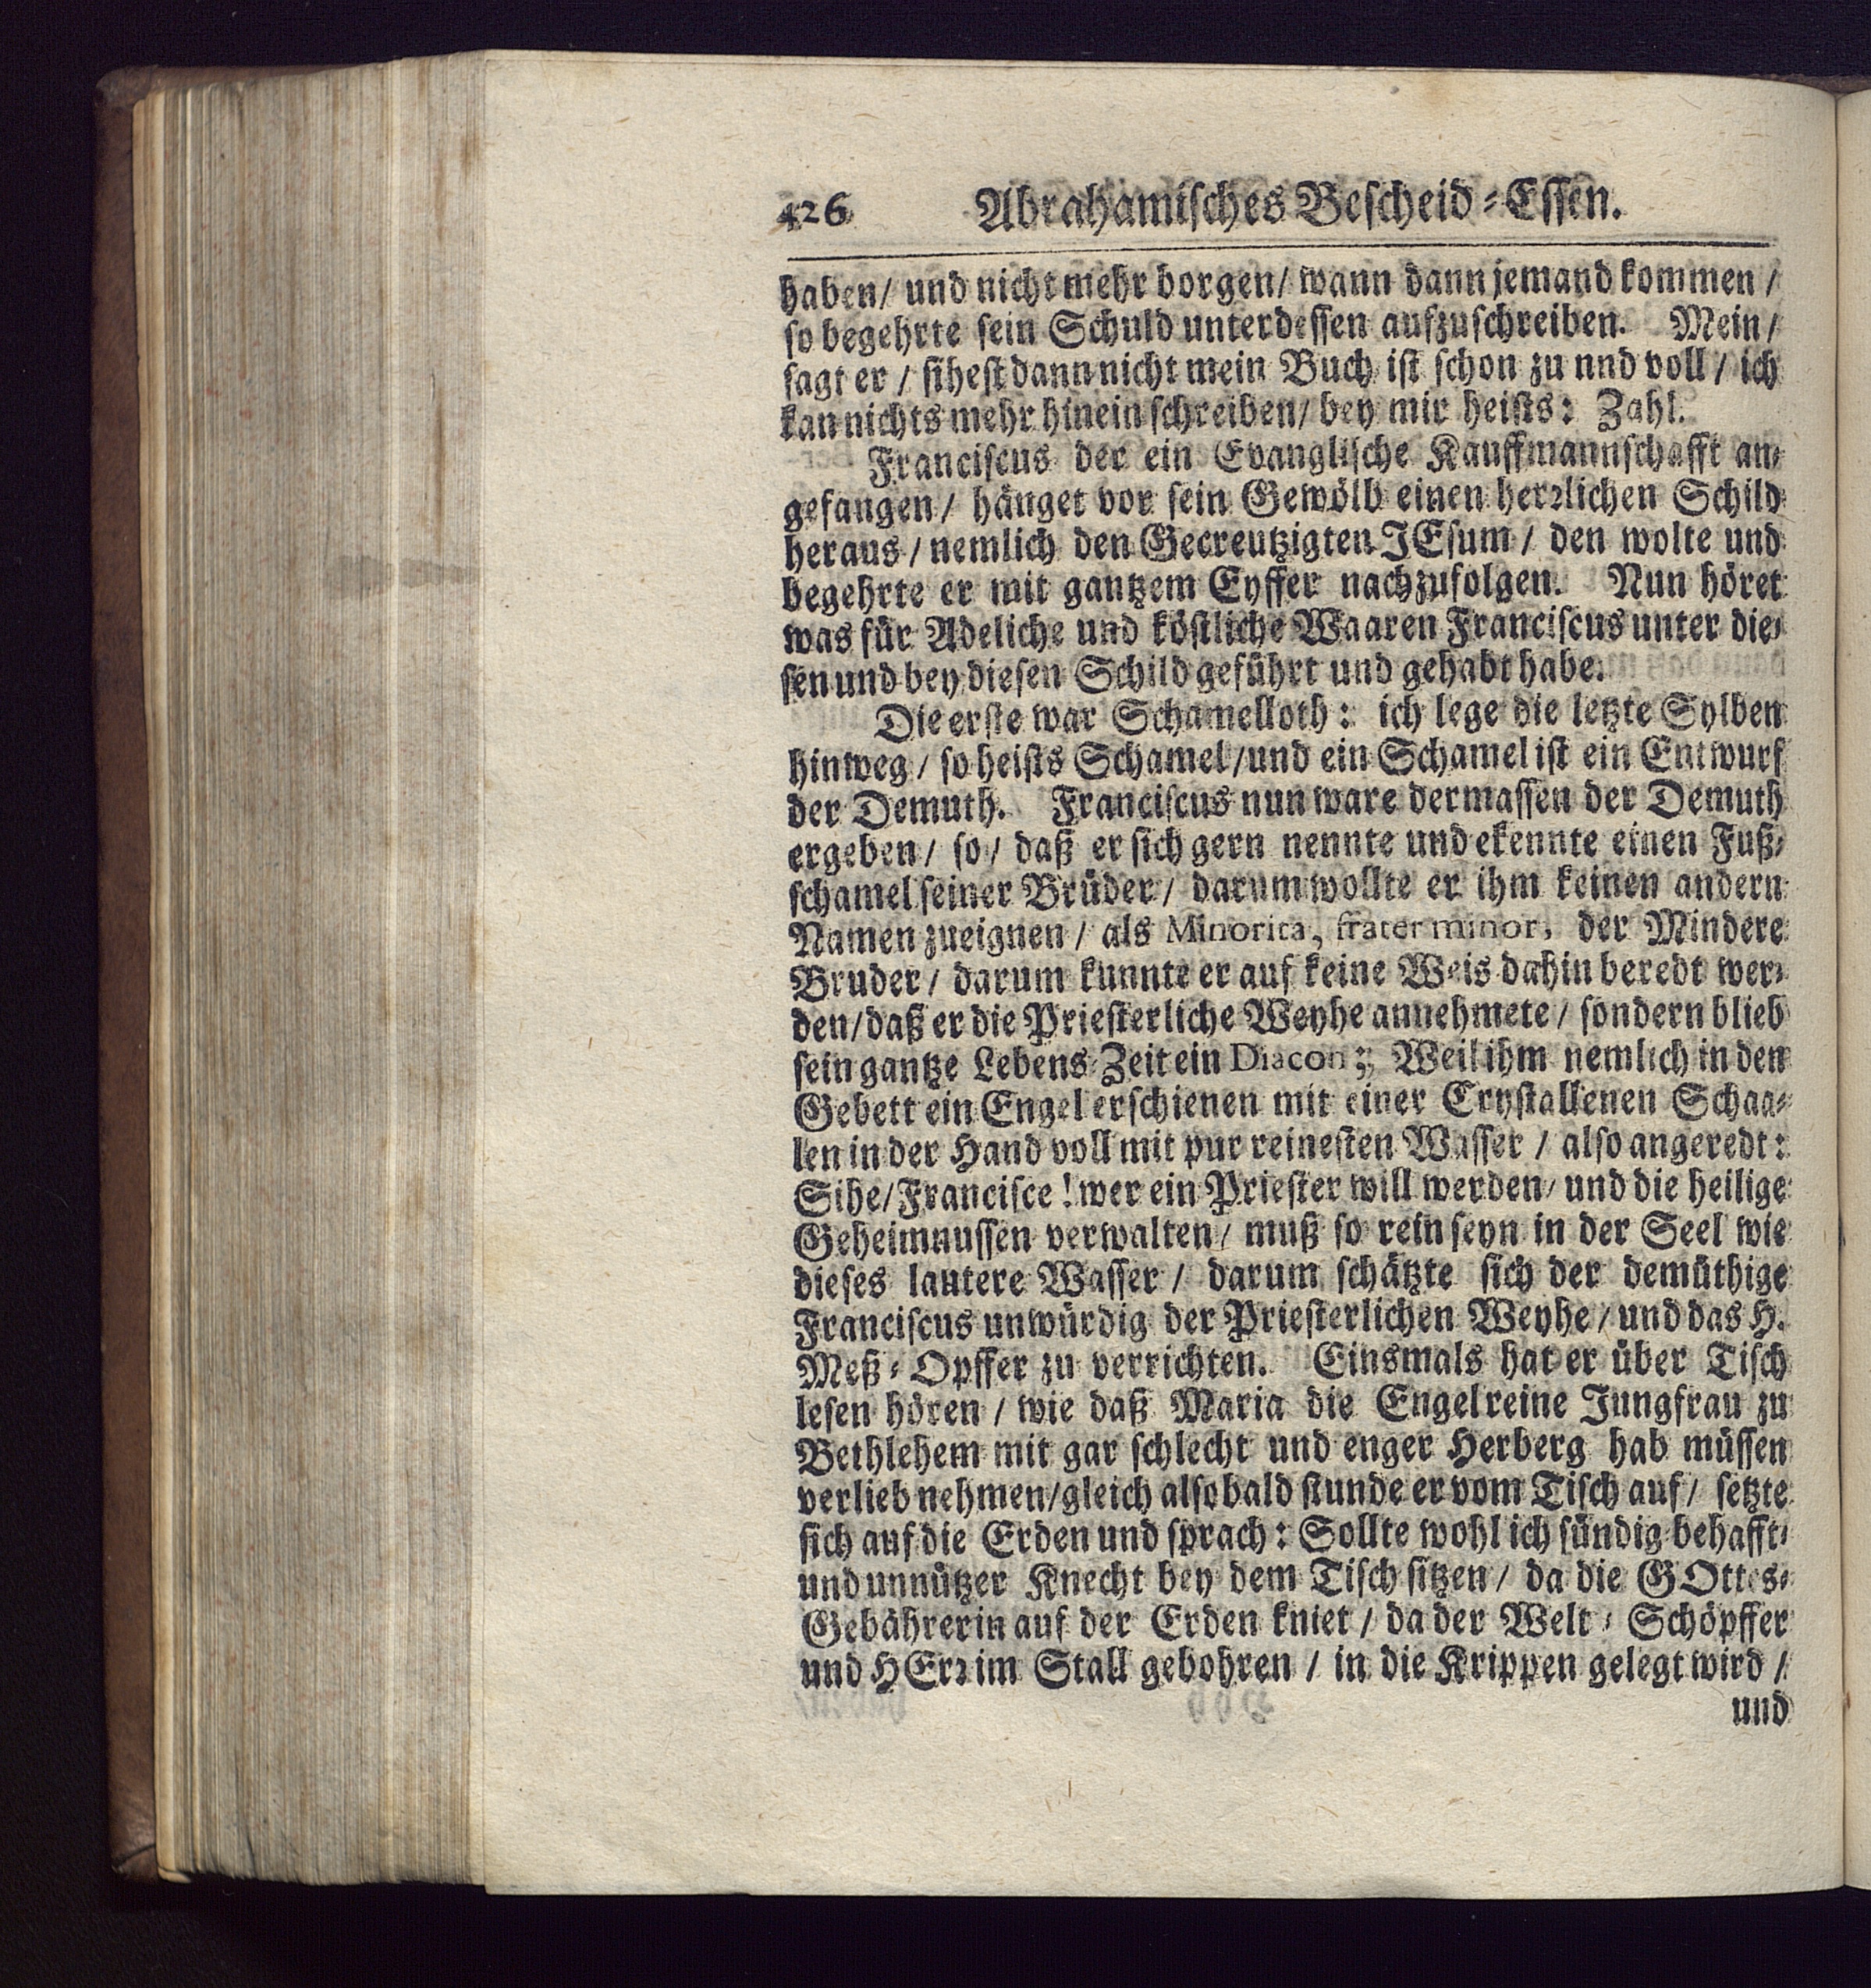 426 Abrahamisches Bescheid-Essen.
haben/ und nicht mehr borgen/ wann dann jemand kommen /
so begehrte sein Schuld unterdessen aufzuschreiben. Mein/
sagt er / sihest dann nicht mein Buch ist schon zu nnd voll / ich
kan nichts mehr hinein schreiben/ bey mir heists: Zahl.
Franciscus der ein Evanglische Kauffmannschafft an-
gefangen/ hänget vor sein Gewölb einen herrlichen Schild
heraus / nemlich den Gecreutzigten JEsum / den wolte und
begehrte er mit gantzem Eyffer nachzufolgen. Nun höret
was für Adeliche und köstliche Waaren Franciscus unter die-
sen und bey diesen Schild geführt und gehabt habe.
Die erste war Schamelloth: ich lege die letzte Sylben
hinweg / so heists Schamel/und ein Schamel ist ein Entwurf
der Demuth. Franciscus nun ware dermassen der Demuth
ergeben/ so/ daß er sich gern nennte und ekennte einen Fuß-
schamel seiner Brüder/ darum wollte er ihm keinen andern
Namen zueignen / als Minorita, frater minor, der Mindere
Bruder / darum kunnte er auf keine Weis dahin beredt wer-
den/daß er die Priesterliche Weyhe annehmete / sondern blieb
sein gantze Lebens-Zeit ein Diacon; Weil ihm nemlich in den
Gebett ein Engel erschienen mit einer Crystallenen Schaa-
len in der Hand voll mit pur reinesten Wasser / also angeredt:
Sihe/Francisce! wer ein Priester will werden/ und die heilige
Geheimnussen verwalten/ muß so rein seyn in der Seel wie
dieses lautere Wasser / darum schätzte sich der demüthige
Franciscus unwürdig der Priesterlichen Weyhe / und das H.
Meß-Opffer zu verrichten. Einsmals hat er über Tisch
lesen hören / wie daß Maria die Engelreine Jungfrau zu
Bethlehem mit gar schlecht und enger Herberg hab müssen
verlieb nehmen/gleich alsobald stunde er vom Tisch auf/ setzte
sich auf die Erden und sprach: Sollte wohl ich sündig behafft-
und unnützer Knecht bey dem Tisch sitzen/ da die GOttes-
Gebährerin auf der Erden kniet / da der Welt-Schöpffer
und HErr im Stall gebohren / in die Krippen gelegt wird /
und